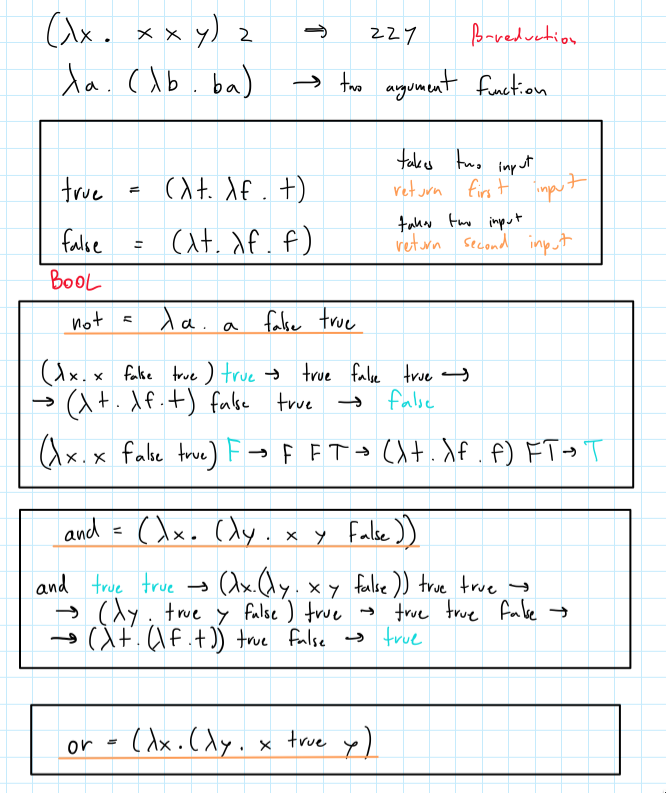 (λx. x x y) 2 ⇒ 2 2 y β-reduction
λa. (λb. ba) → two argument function
takes two input
true = (λt. λf. t) return first input
takes two input
false = (λt. λf. f) return second input
BOOL
not = λa. a false true
(λx. x false true) true → true false true →
→ (λt. λf. t) false true → false
(λx. x false true) F → F F T → (λt. λf. f) F T → T
and = (λx. (λy. x y false))
and true true → (λx.(λy. x y false)) true true →
→ (λy. true y false) true → true true false →
→ (λt. (λf. t)) true false → true
or = (λx.(λy. x true y)